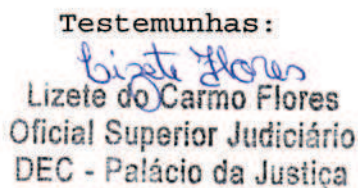 Testemunhas:
Lizete Flores
Lizete do Carmo Flores
Oficial Superior Judiciário
DEC - Palácio da Justiça